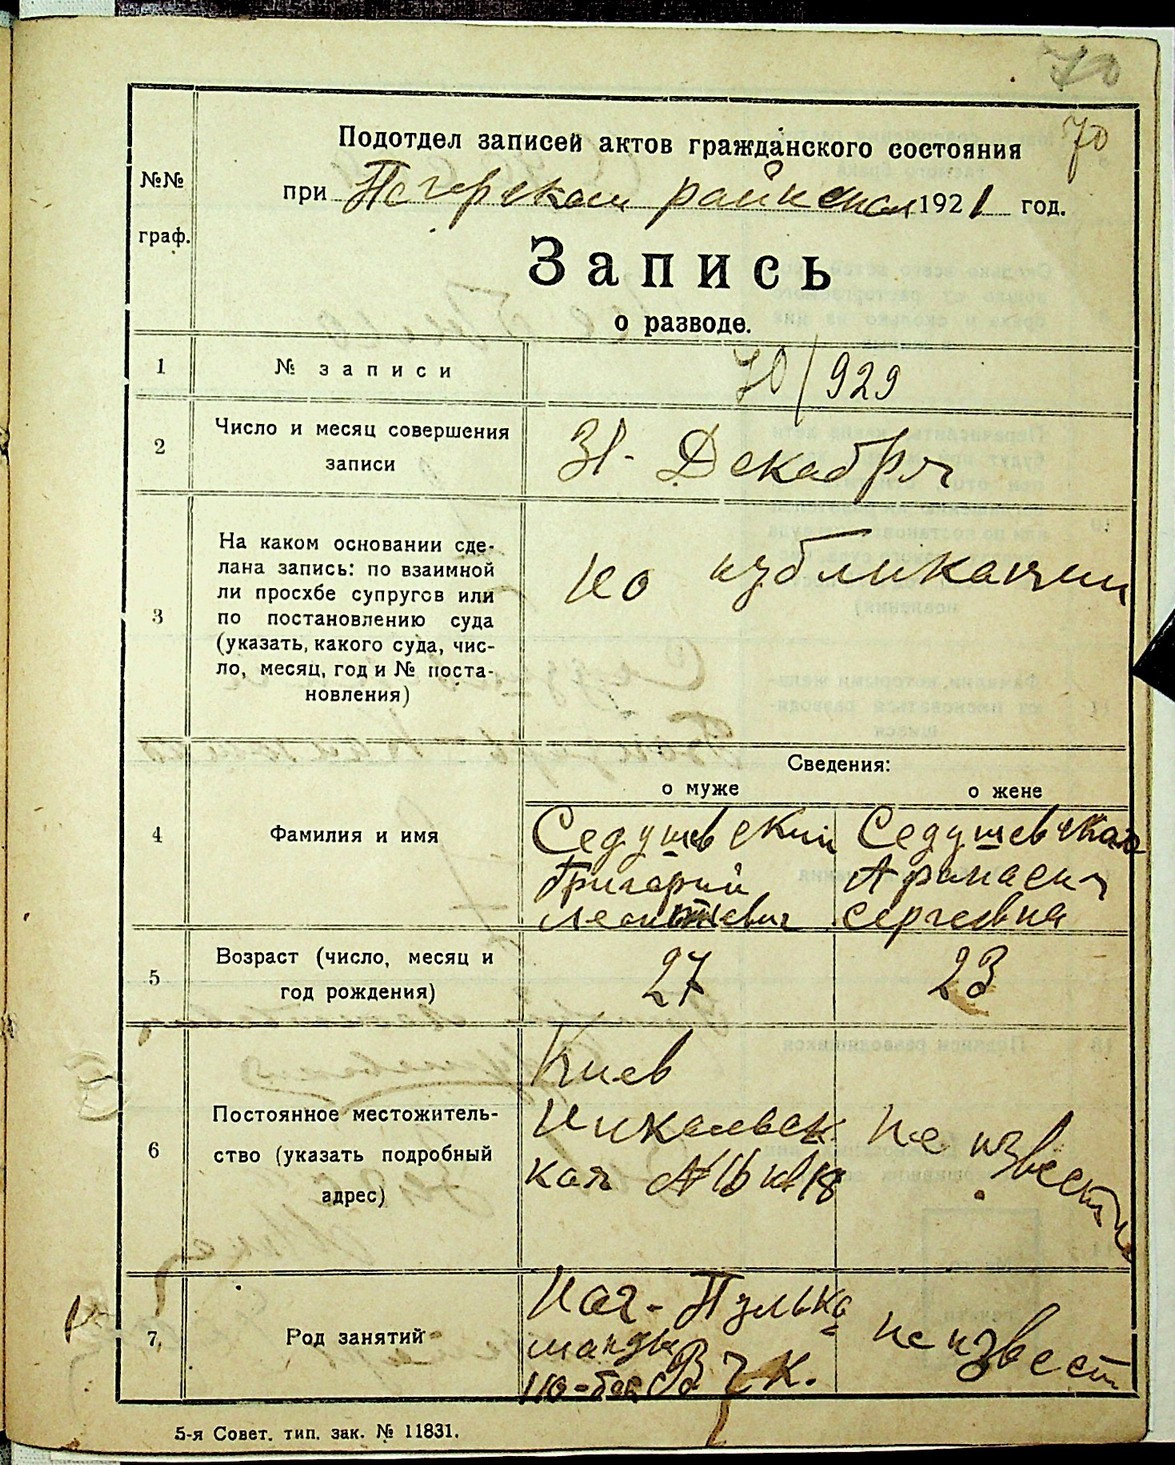 70
70
Подотдел записей актов гражданского состояния
при Печерском 1921 год.
№№
граф.
Запись
о разводе.
1 № записи 70/929
2 Число и месяц совершения
записи
31. Декабря
3 На каком основании сде-
лана запись: по взаимной
ли просхбе супругов или
по постановлению суда
(указать, какого суда, чис-
ло, месяц, год и № поста-
новления)
по публикации
Сведения:
о муже о жене
4 Фамилия и имя
Седушевский
Григорий
Леонтьевич
Седушевская
Сергеевна
5 Возраст (число, месяц и
год рождения)
27 23
6 Постоянное местожитель-
ство (указать подробный
адрес)
Киев
Никольск
кая № 16 кв 18
не известно
7 Род занятий
Нач- Пулько
манды
В Ч К.
не извест
5-я Совет. тип. зак. № 11831.